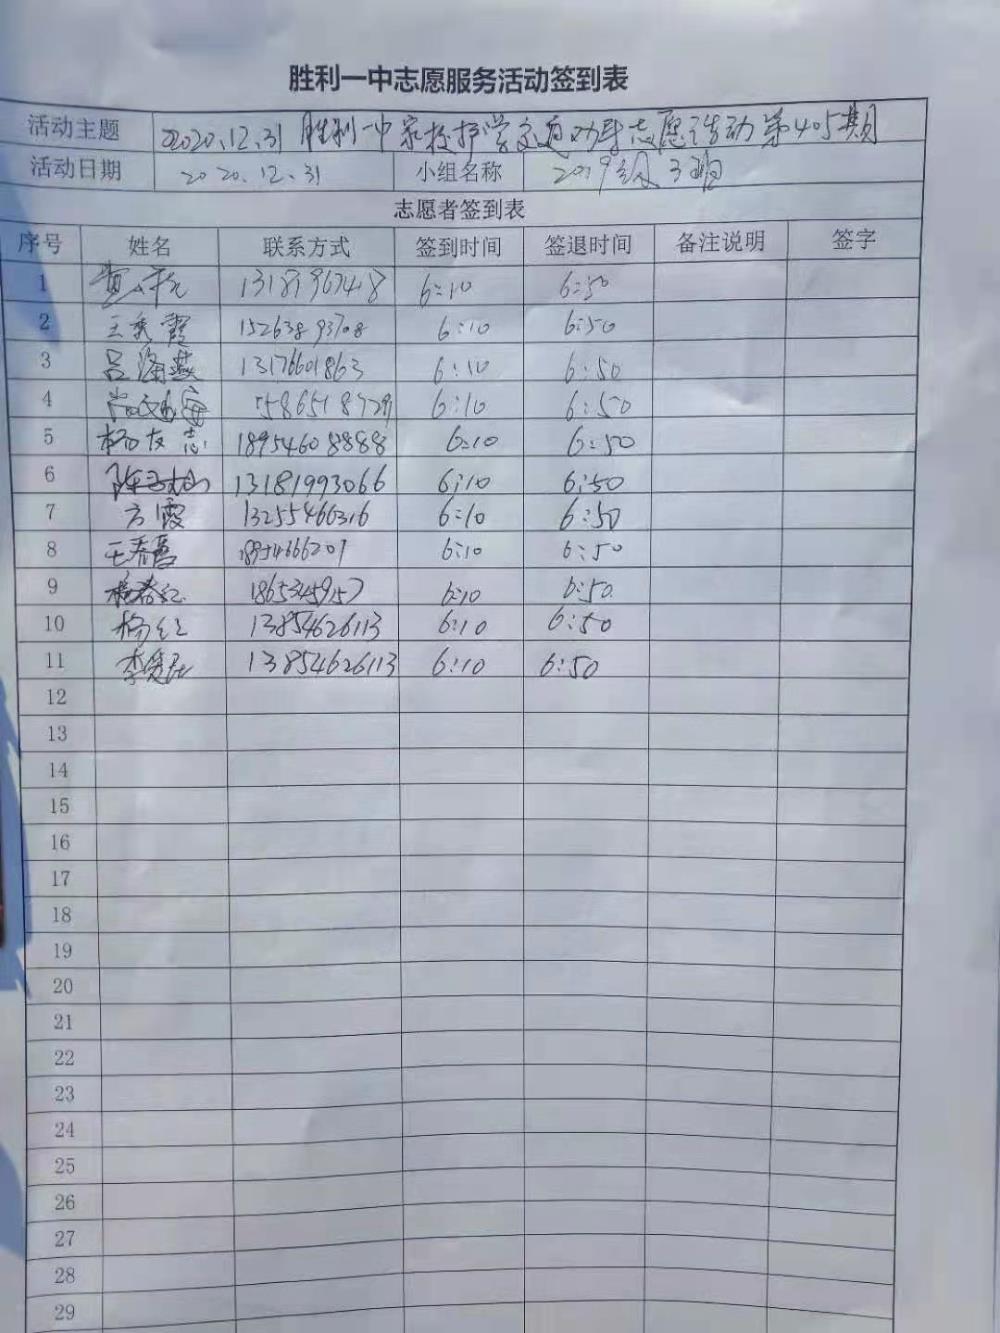 胜利一中志愿服务活动签到表
活动主题 2020.12.31 胜利一中家校护学交通劝导志愿活动第405期
活动日期 2020.12.31 小组名称 2019级3班
志愿者签到表
序号 姓名 联系方式 签到时间 签退时间 备注说明 签字
1 6:10 6:50
2 王秀霞 15263893708 6:10 6:50
3 吕海燕 13176601863 6:10 6:50
4 6:10 6:50
5 杨友志 18954608888 6:10 6:50
6 13181993066 6:10 6:50
7 方霞 13255466316 6:10 6:50
8 18954666201 6:10 6:50
9 杨春红 6:10 6:50
10 杨红 13854626113 6:10 6:50
11 13854626113 6:10 6:50
12
13
14
15
16
17
18
19
20
21
22
23
24
25
26
27
28
29